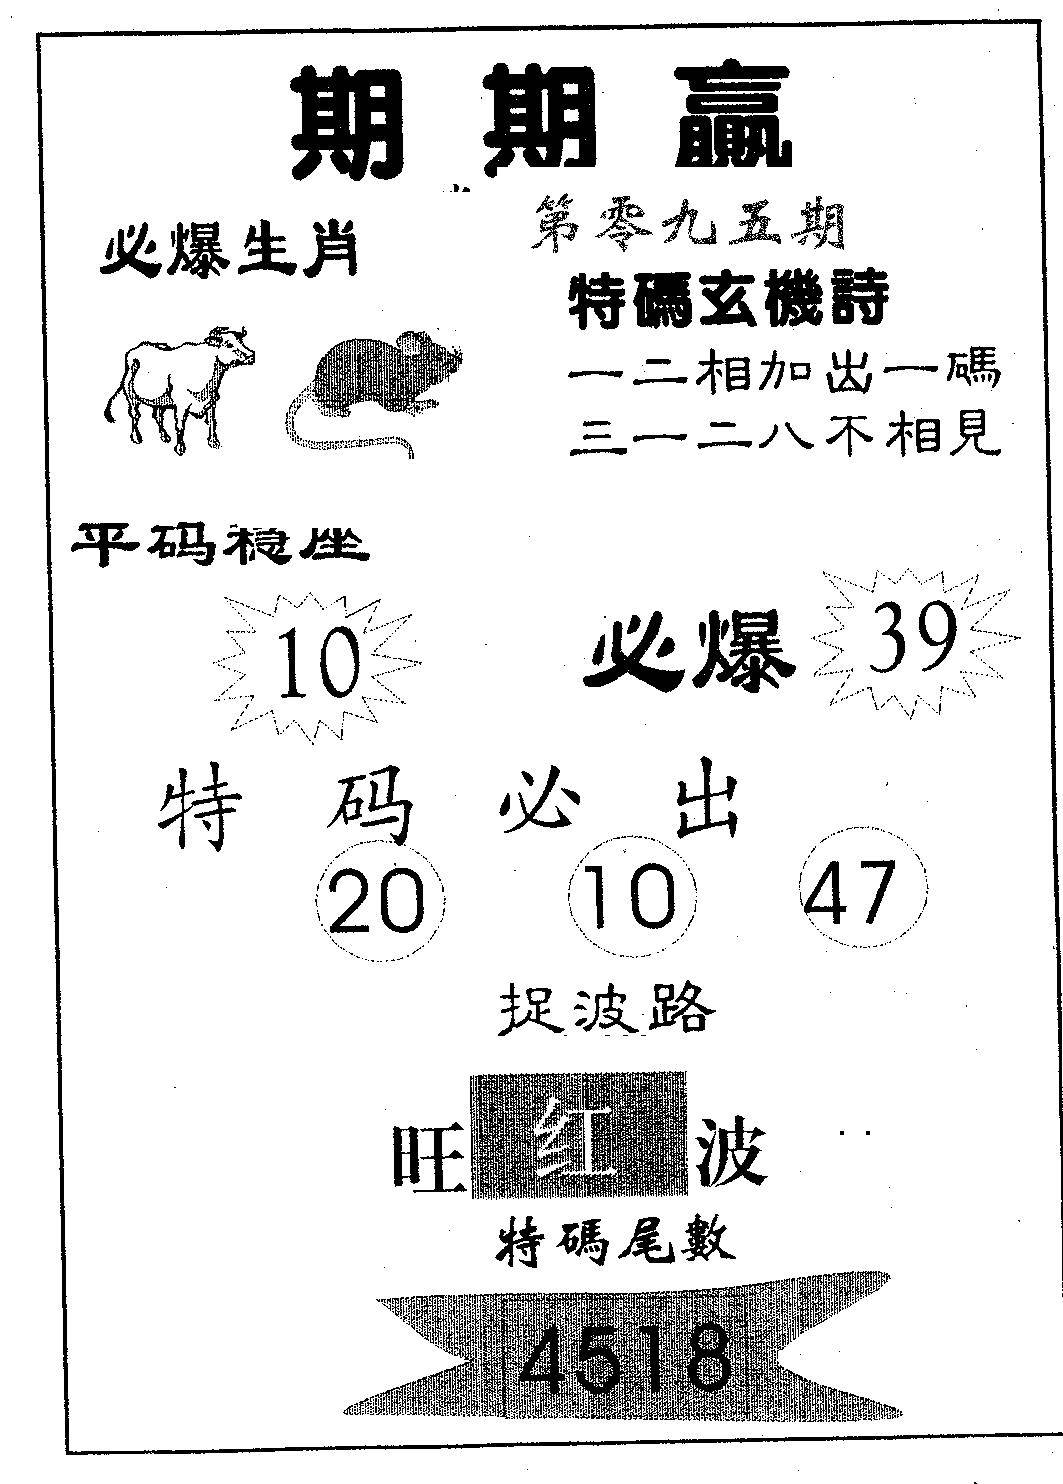 期期贏
第零九五期
必爆生肖
特碼玄機詩
一二相加出一碼
三一二八不相見
平码稳座
10
必爆 39
特码必出
20 10 47
捉波路
旺红波
特碼尾數
4518